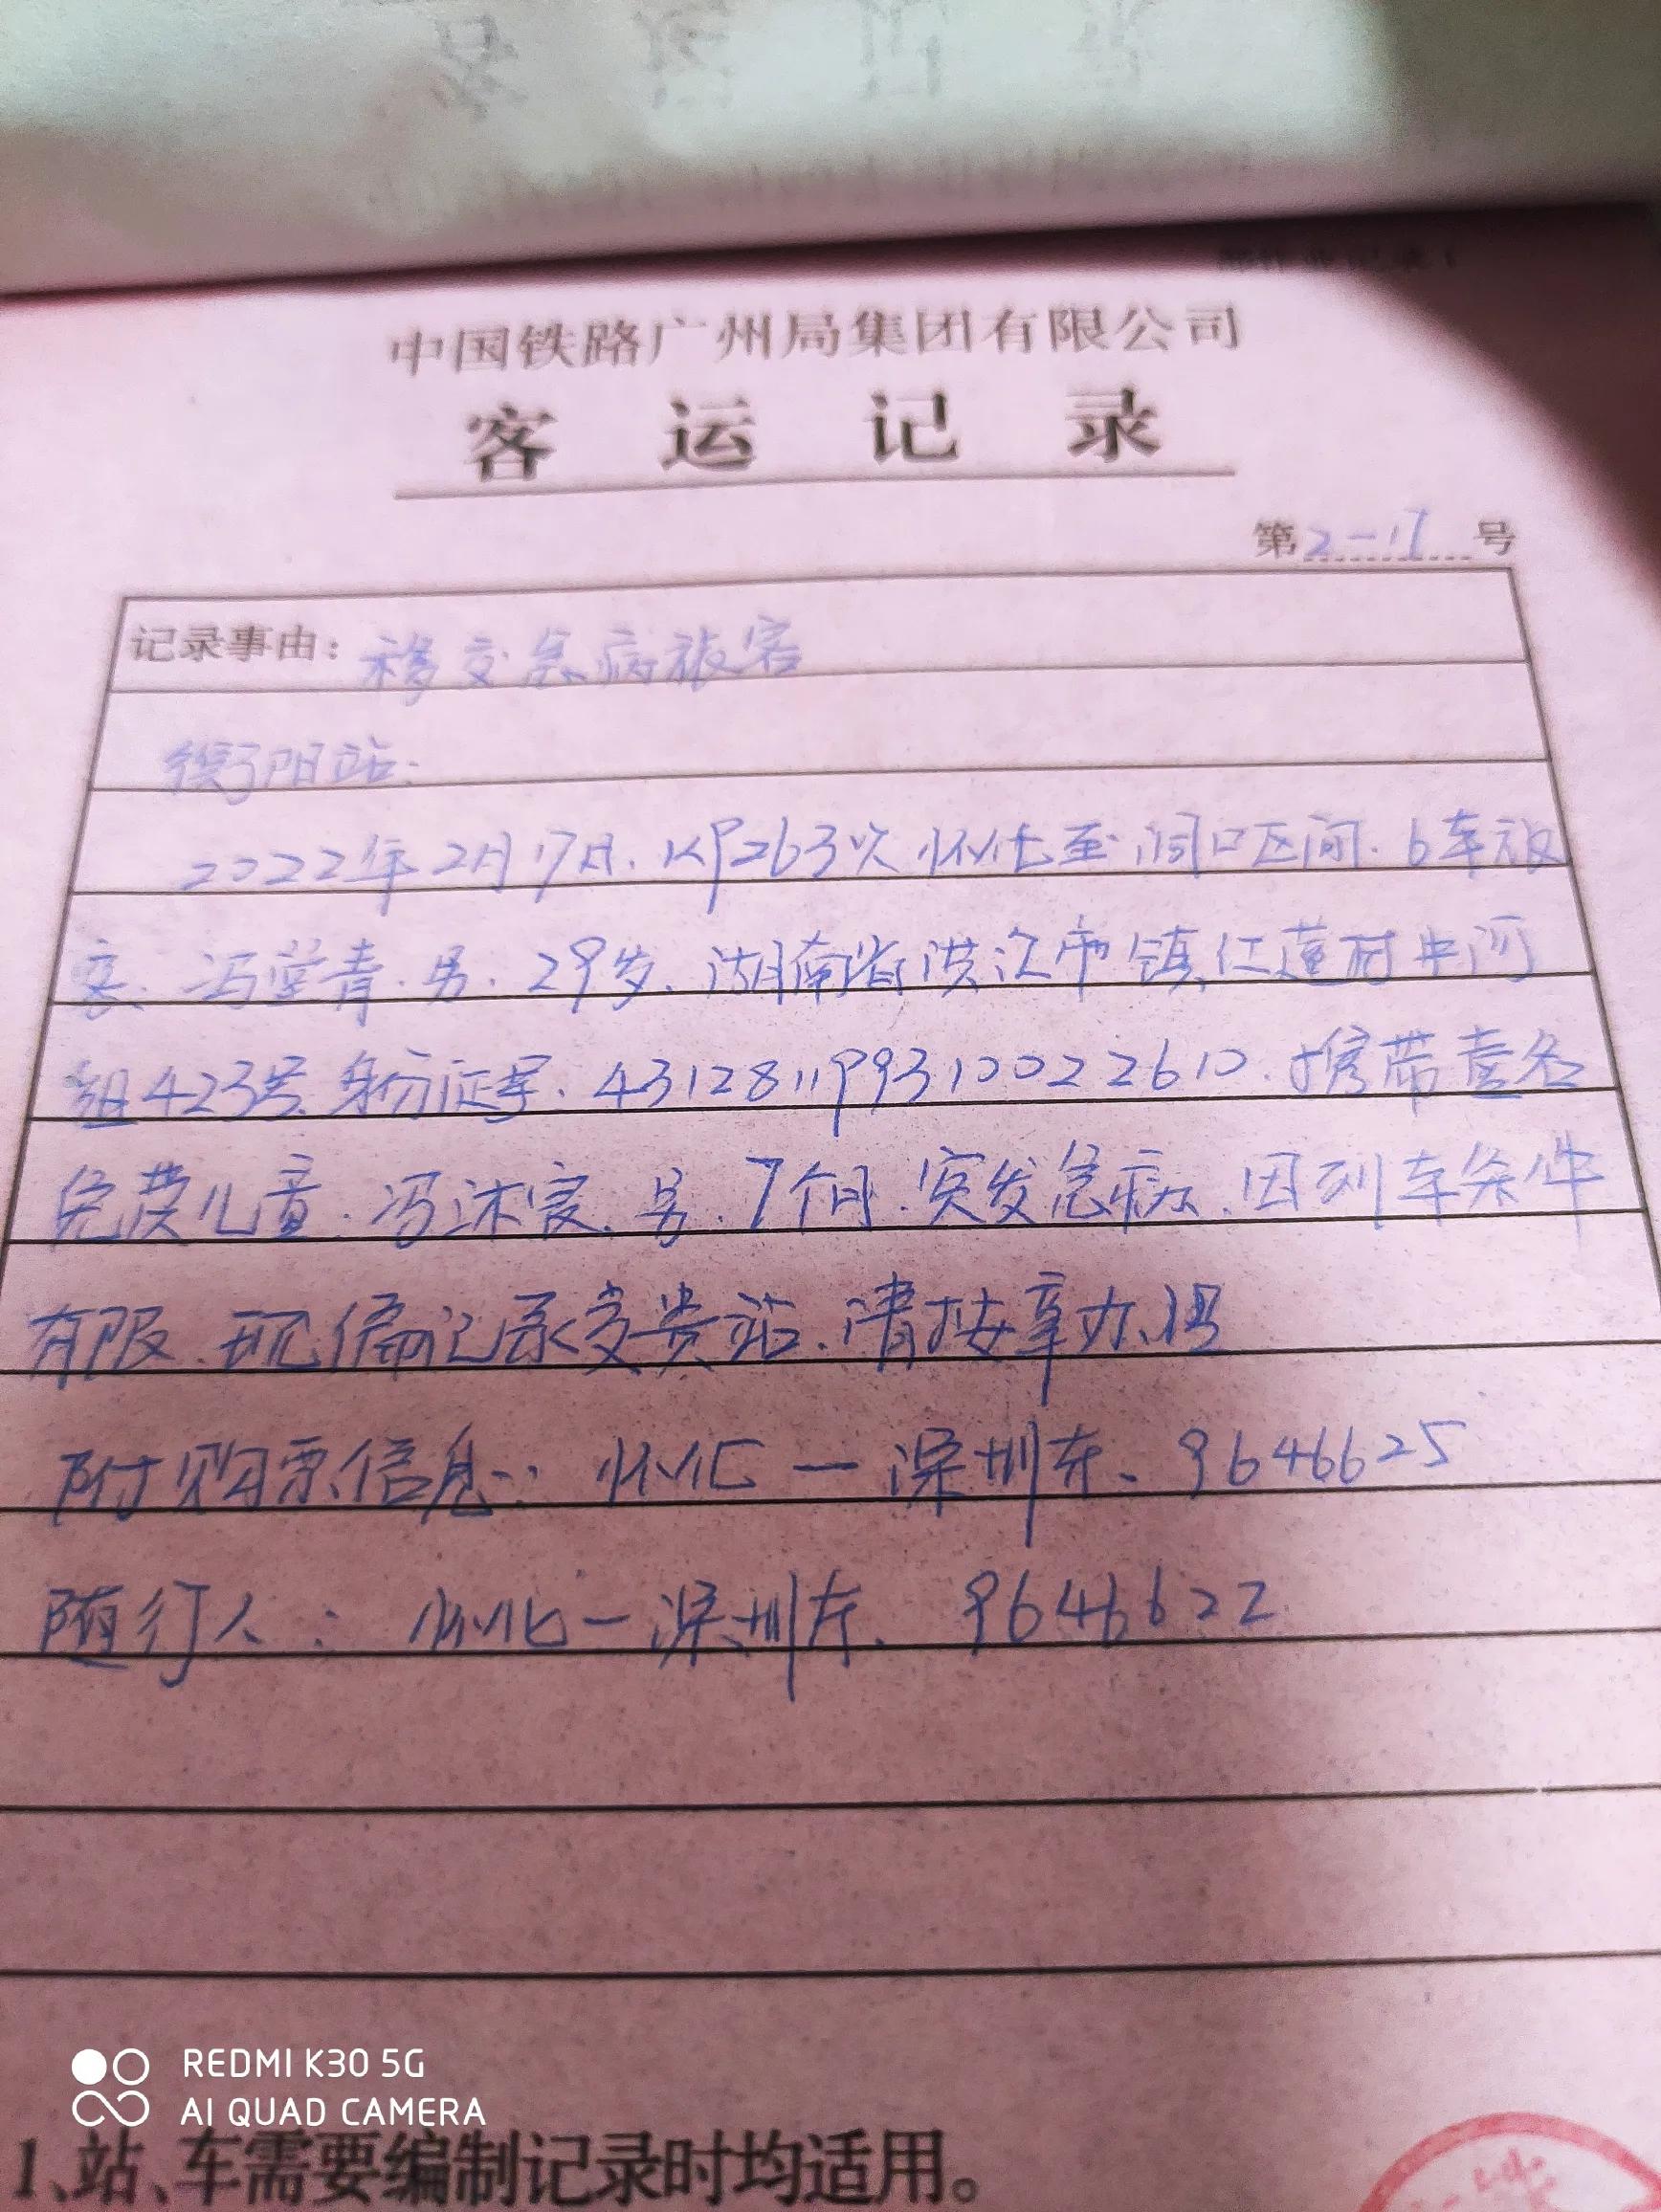 中国铁路广州局集团有限公司
客运记录
第2-17号
记录事由：移交急病旅客
衡阳站：
2022年2月17日.K9263次怀化至洞口区间.6车旅
客、冯堂青.男.29岁、湖南省洪江市镇仁莲村中河
组423号.身份证号.431281199310022610.携带壹名
免费儿童.冯沐宸.男.7个月.突发急病、因列车条件
有限.现编记录交贵站.请按章办理
附购票信息：怀化—深圳东、9646625
随行人：怀化—深圳东、9646622
REDMI K30 5G
AI QUAD CAMERA
1、站、车需要编制记录时均适用。